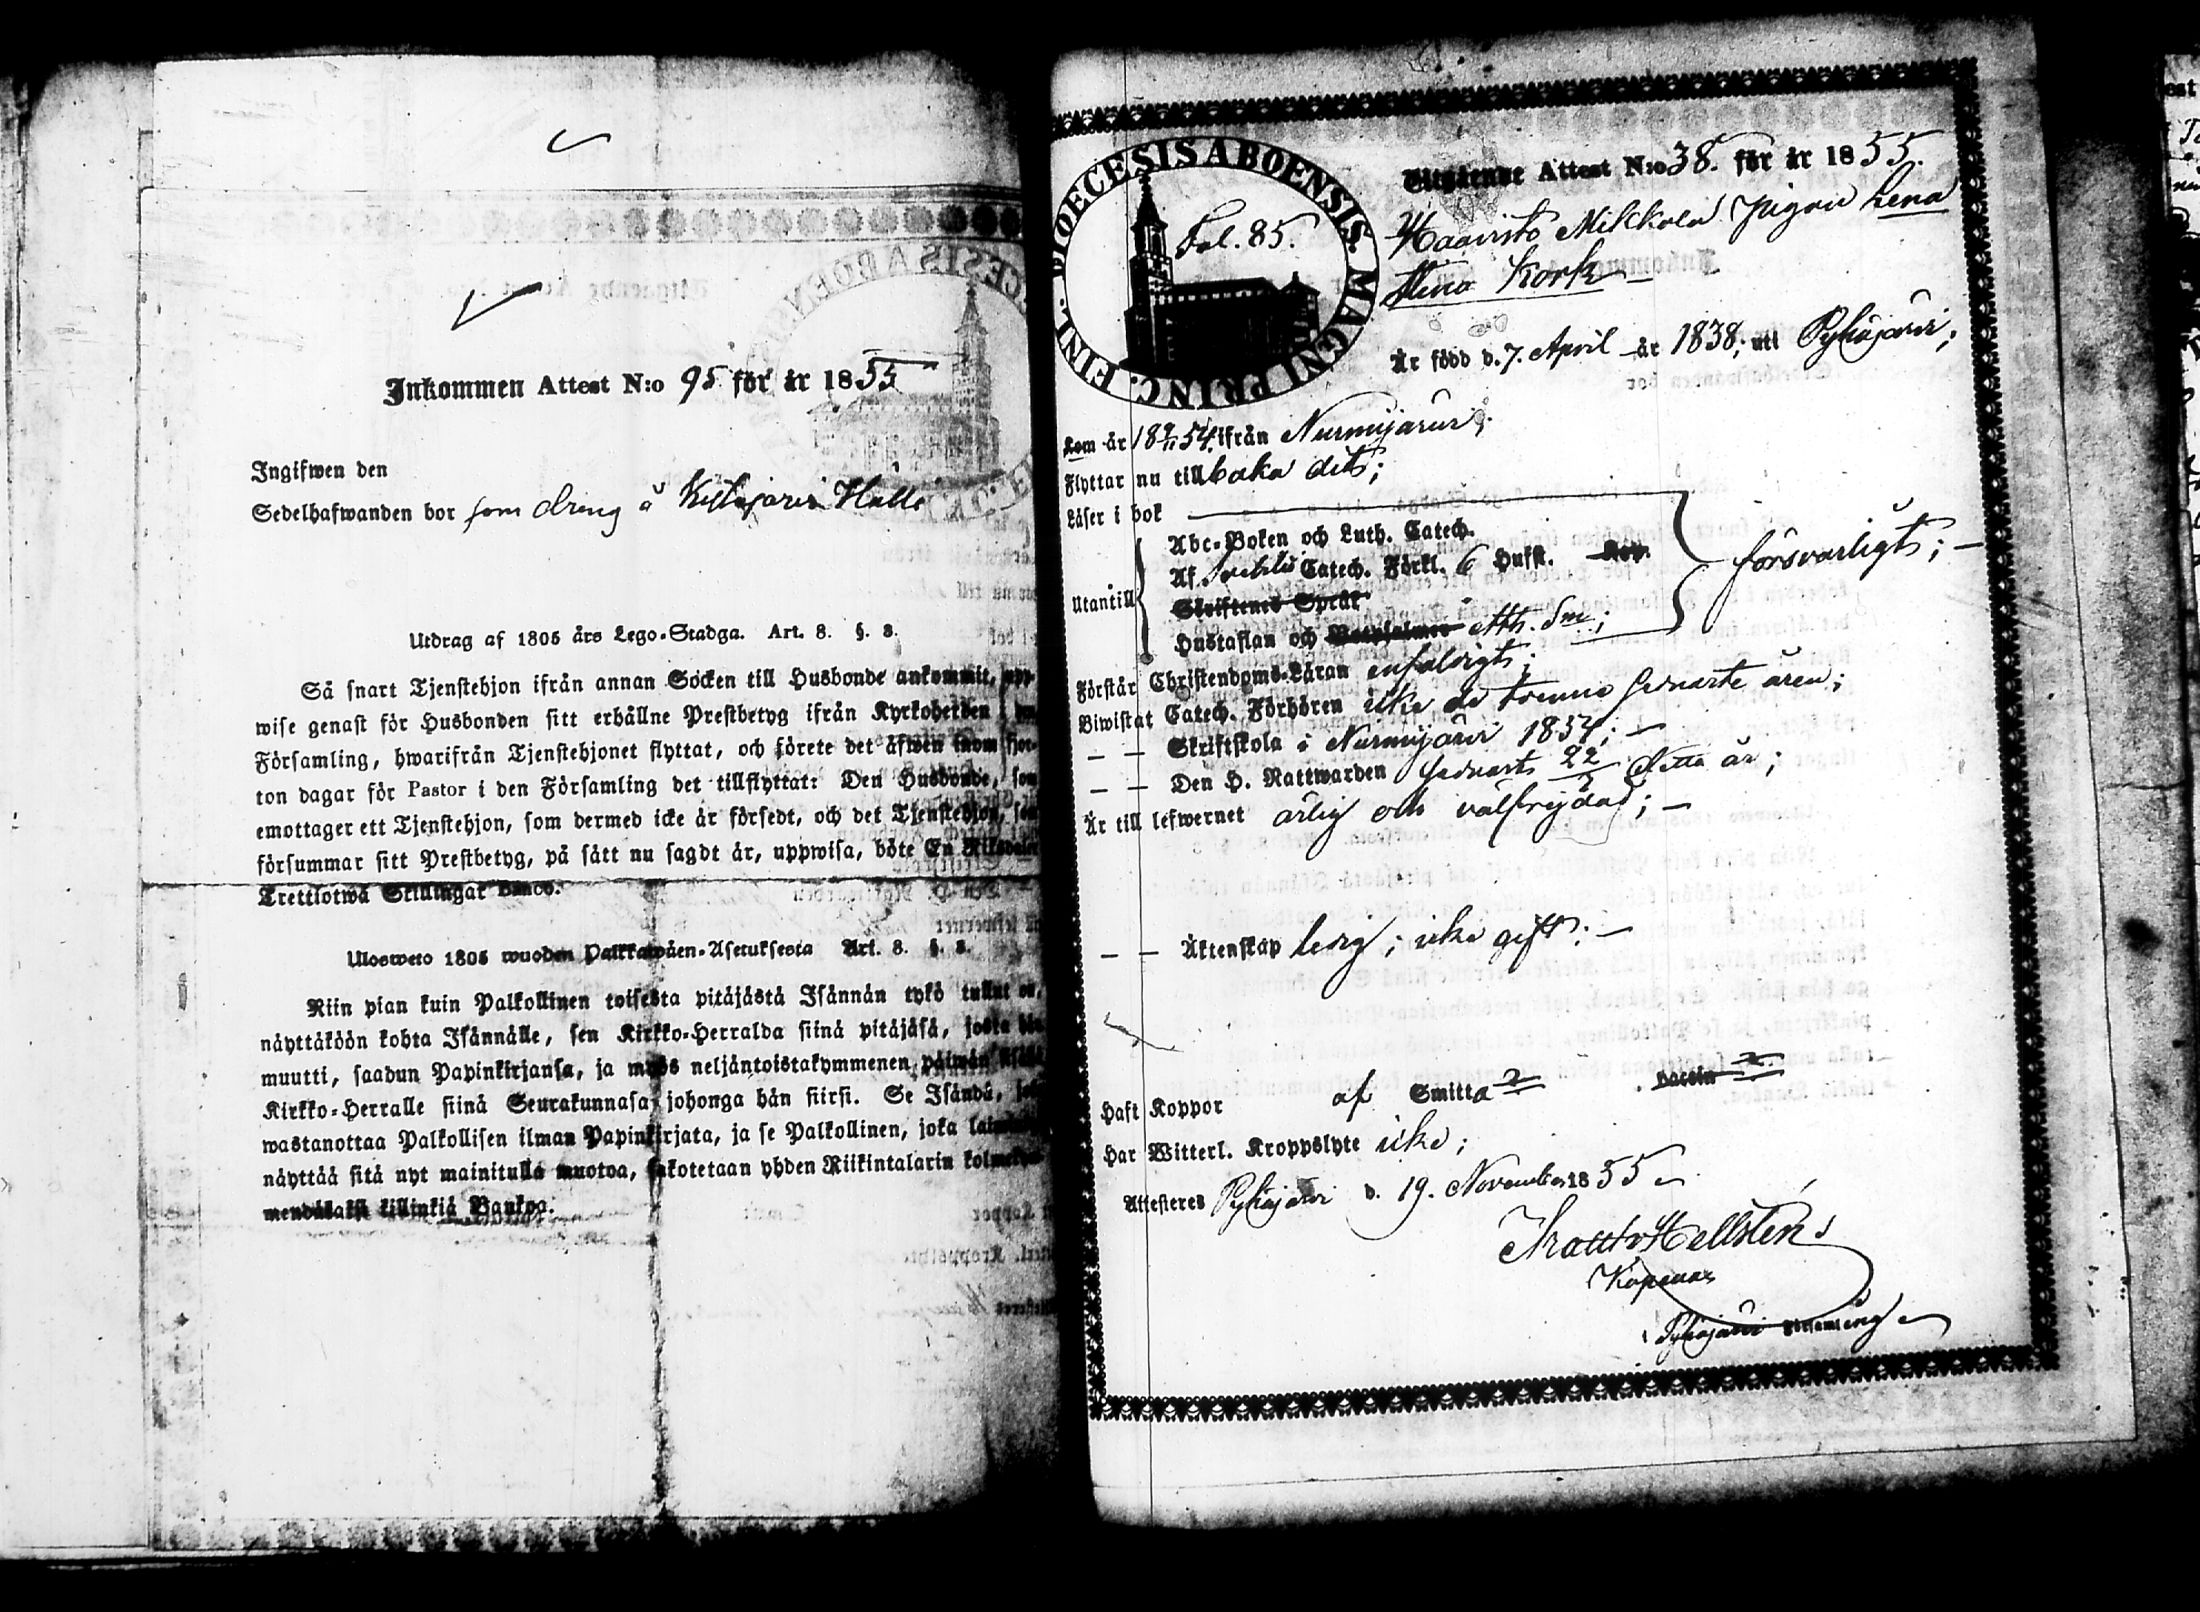 Inkommen Attest N:o 95 för år 1855
Ingifwen den
Sedelhafwanden bor som dreng å Kytäjärvi Halli
Utdrag af 1805 års Lego-Stadga. Art. 8. §. 8.
Så snart Tjenstehjon ifrån annan Socken till Husbonde ankommit, upp-
wise genast för Husbonden sitt erhållne Prestbetyg ifrån Kyrkoherden i den
Församling, hwarifrån Tjenstehjonet flyttat, och förete det äfwen inom fjor-
ton dagar för Pastor i den Församling det tillflyttat: Den Husbonde, som
emottager ett Tjenstehjon, som dermed icke är försedt, och det Tjenstehjon, som
försummar sitt Prestbetyg, på sätt nu sagdt är, uppwisa, böte En Riksdaler
Trettiotwå Skillingar Banco.
Ulosweto 1805 wuoden Palkkawäen-Asetuksesta Art. 8. §. 8.
Niin pian kuin Palkollinen toisesta pitäjästä Isännän tykö tullut on,
näyttäköön kohta Isännälle, sen Kirkko-Herralda siinä pitäjäsä, josta hän
muutti, saadun Papinkirjansa, ja myös neljäntoistakymmenen päiwän sisällä
Kirkko-Herralle siinä Seurakunnasa, johonga hän siirsi. Se Isändä, joka
wastanottaa Palkollisen ilman Papinkirjata, ja se Palkollinen, joka
näyttää sitä nyt mainitulla muotoa, sakotetaan yhden Riikintalarin kolmekym-
mendäkaksi killinkiä Bankoa.
DIOECESIS ABOENSIS. MAGNI PRINC. FINL.
Fol. 85.
Utgående Attest N:o 38. för år 1855.
Haavisto Mikkola pigan Lena
Stina Kork
Är född d. 7. April år 1838; uti Pyhäjärvi;
Kom år 18 9/11 54. ifrån Nurmijärvi;
Flyttar nu tillbaka dit;
Läser i bok
Abc-Boken och Luth. Catech.
Af Svebilii Catech. Förkl. 6 Hufst. Kap.
försvarligt;
Utantill
Skriftenes Språk
Hustaflan och Botpsalmer Ath. Sm;
Förstår Christendoms-Läran enfaldigt;
Biwistat Catech. Förhören icke de trenne sednaste åren;
— — Skriftskola i Nurmijärvi 1854; —
— — Den H. Nattwarden sednast 22/7 detta år;
Är till lefwernet ärlig och välfrejdad; —
— — Äktenskap ledig; icke gift; —
Haft Koppor af Smitta ? Vaccin ?
Har Witterl. Kroppslyte icke;
Attesteres Pyhäjärvi d. 19. November 1855
Hellsten
Pyhäjärvi Församling